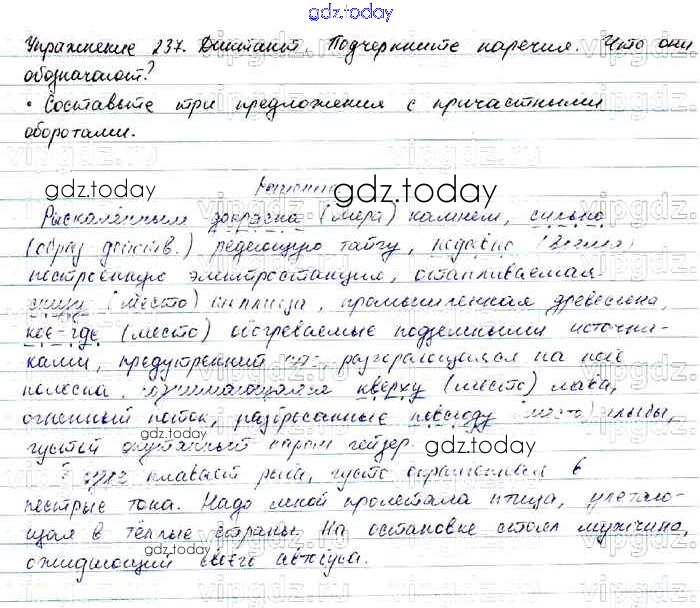 gdz.today
Упражнение 237. Диктант. Подчеркните наречия. Что они
обозначают?
• Составьте три предложения с причастными
оборотами.
gdz.today
gdz.today
Раскалённым докрасна (мера) камнем, сильно
(образ действ.) редеющую тайгу, недавно (время)
построенную электростанция, отапливаемая
снизу (место) теплица, промышленная древесина,
кое-где (место) обогреваемые подземными источни-
ками, предутренний разгорающаяся на небе
полоска, поднимающаяся кверху (место) лава,
огненный поток, разбросанные повсюду (место) глыбы,
gdz.today
густой окутанный паром гейзер.
gdz.today
gdz.today
плавает рыба, густо окрашенная в
пестрые тона. Надо мной пролетала птица, улетаю-
щая в тёплые страны. На остановке стоял мужчина,
gdz.today
ожидающий своего автобуса.
gdz.today